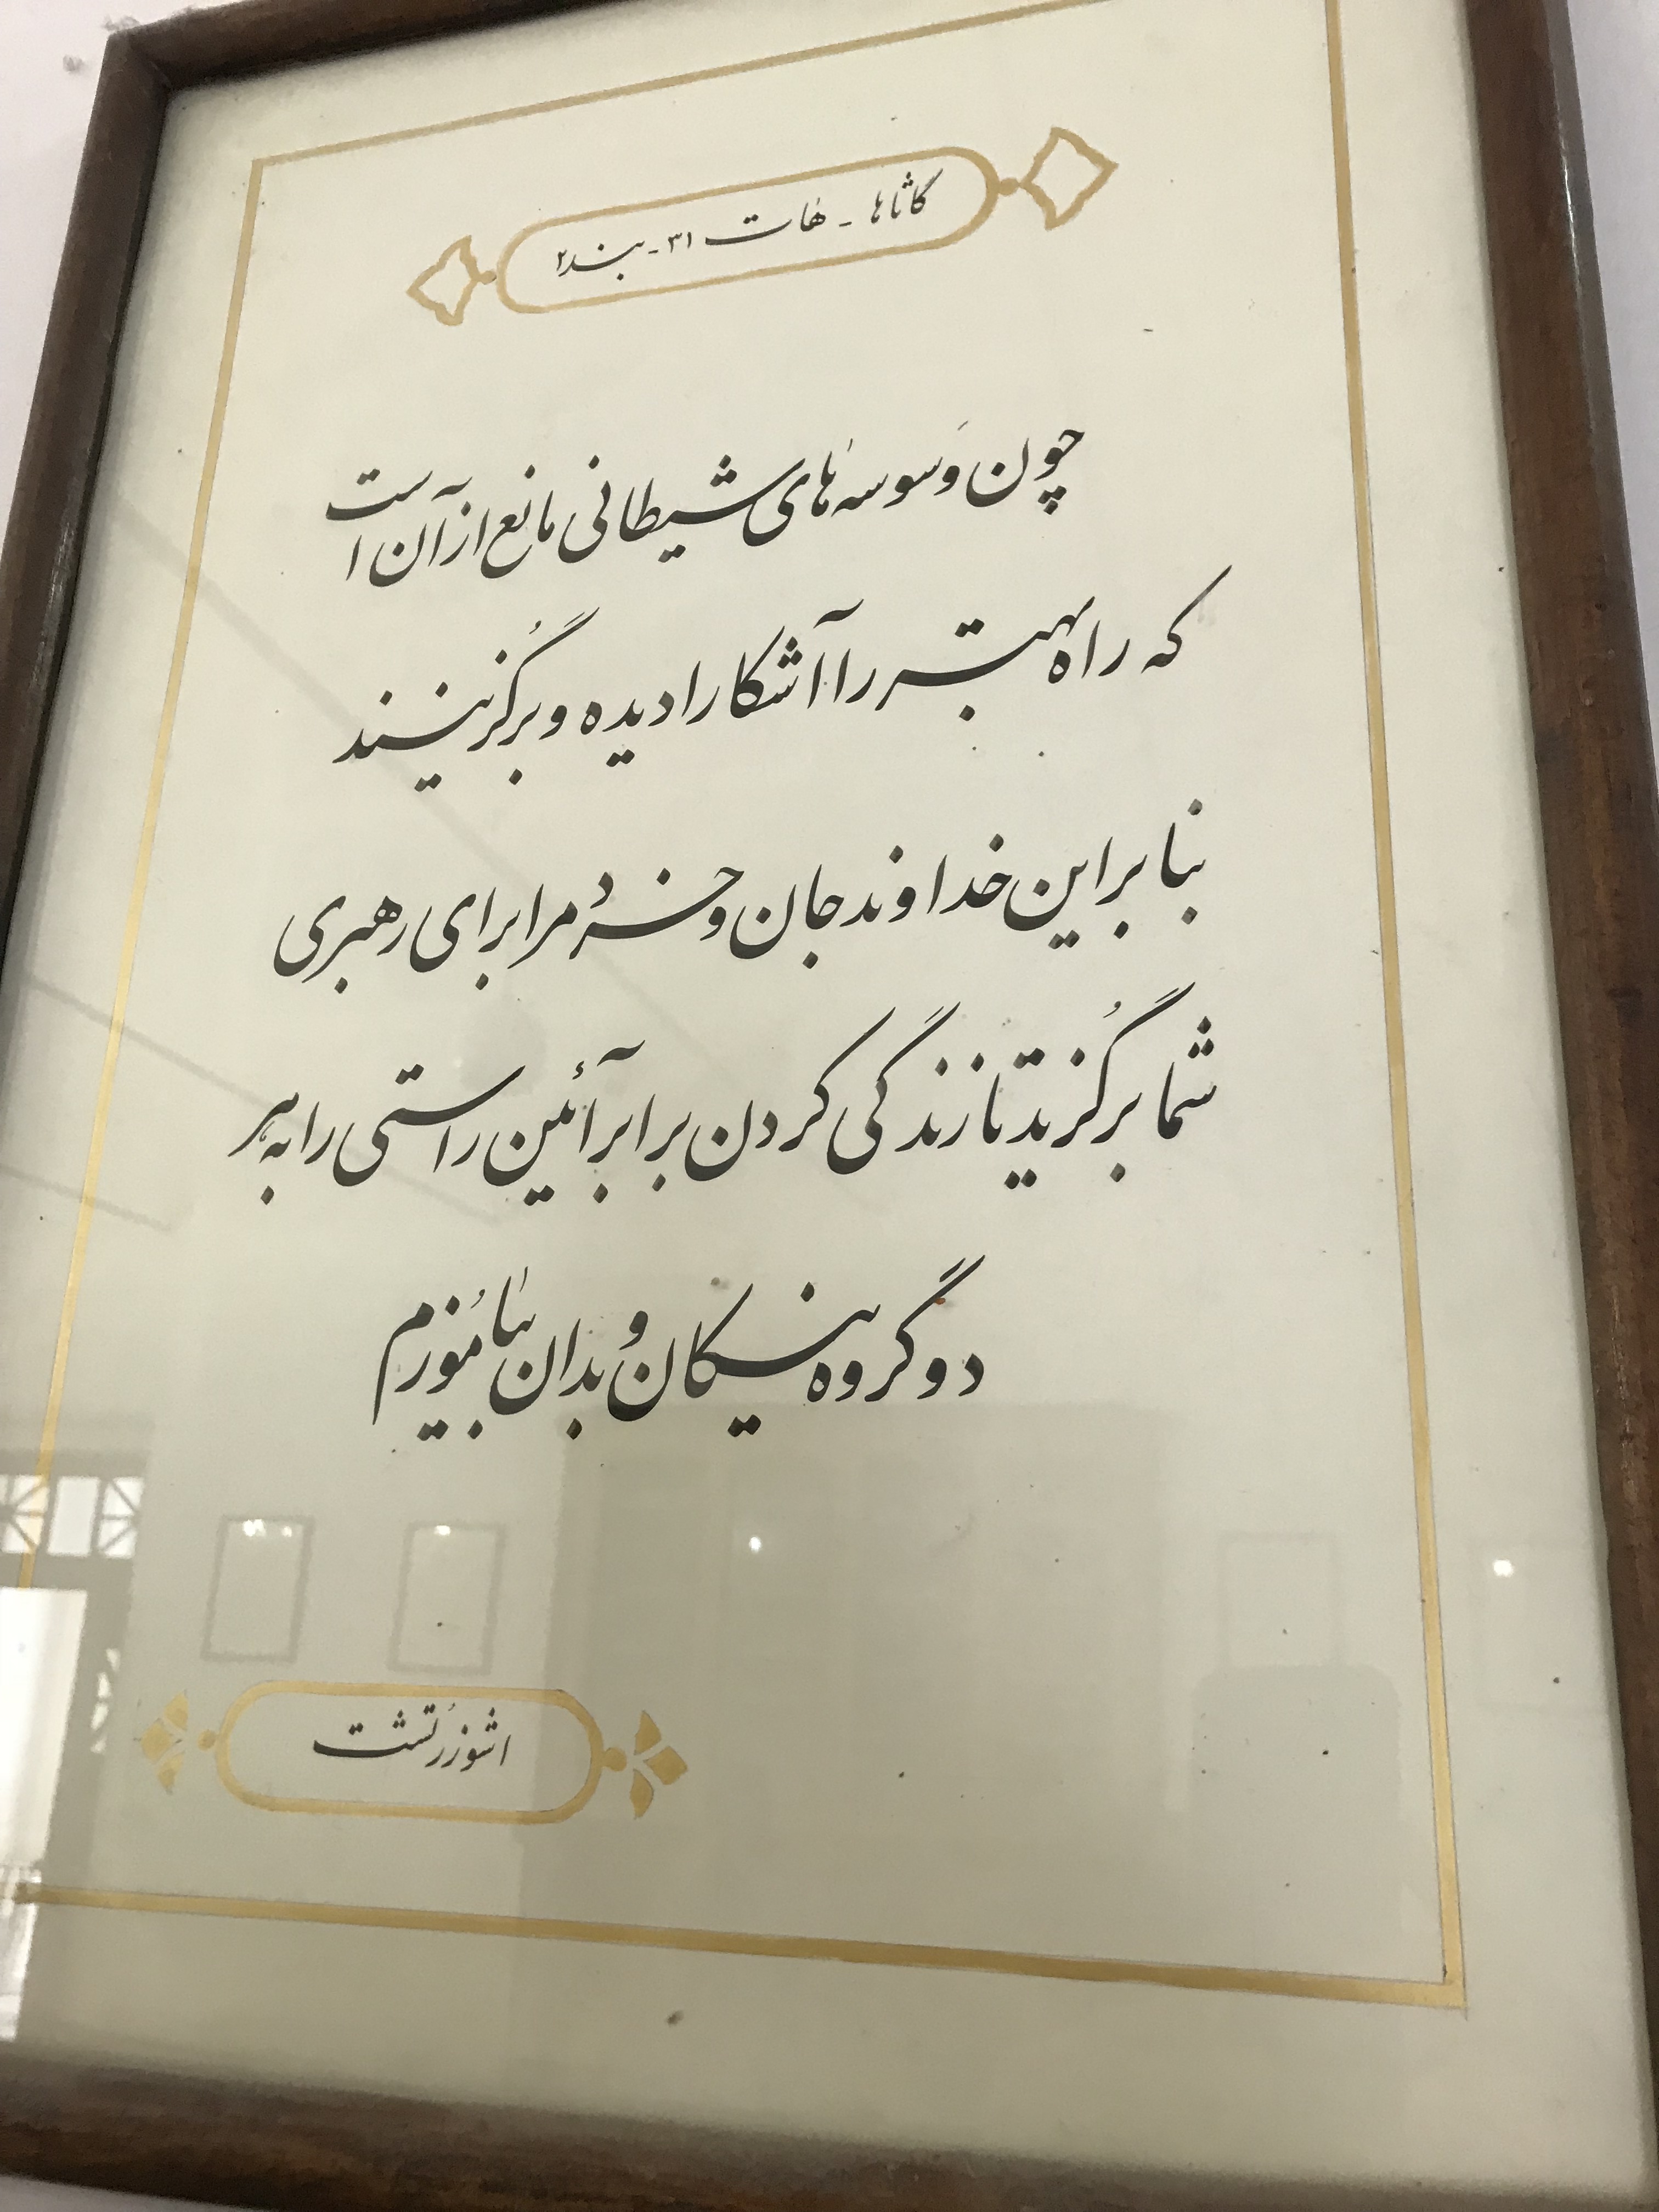 گاثاها - هات ۳۱ - بند ۲
چون وَسوسه‌های شیطانی مانع از آن است
که راه بهتر را آشکارا دیده و برگُزینند
بنابراین خداوند جان و خرد مرا برای رهبری
شما برگُزید تا زندگی کردن برابر آئین راستی را به هر
دو گروه نیکان و بدان بیاموزم
اشوزرتشت